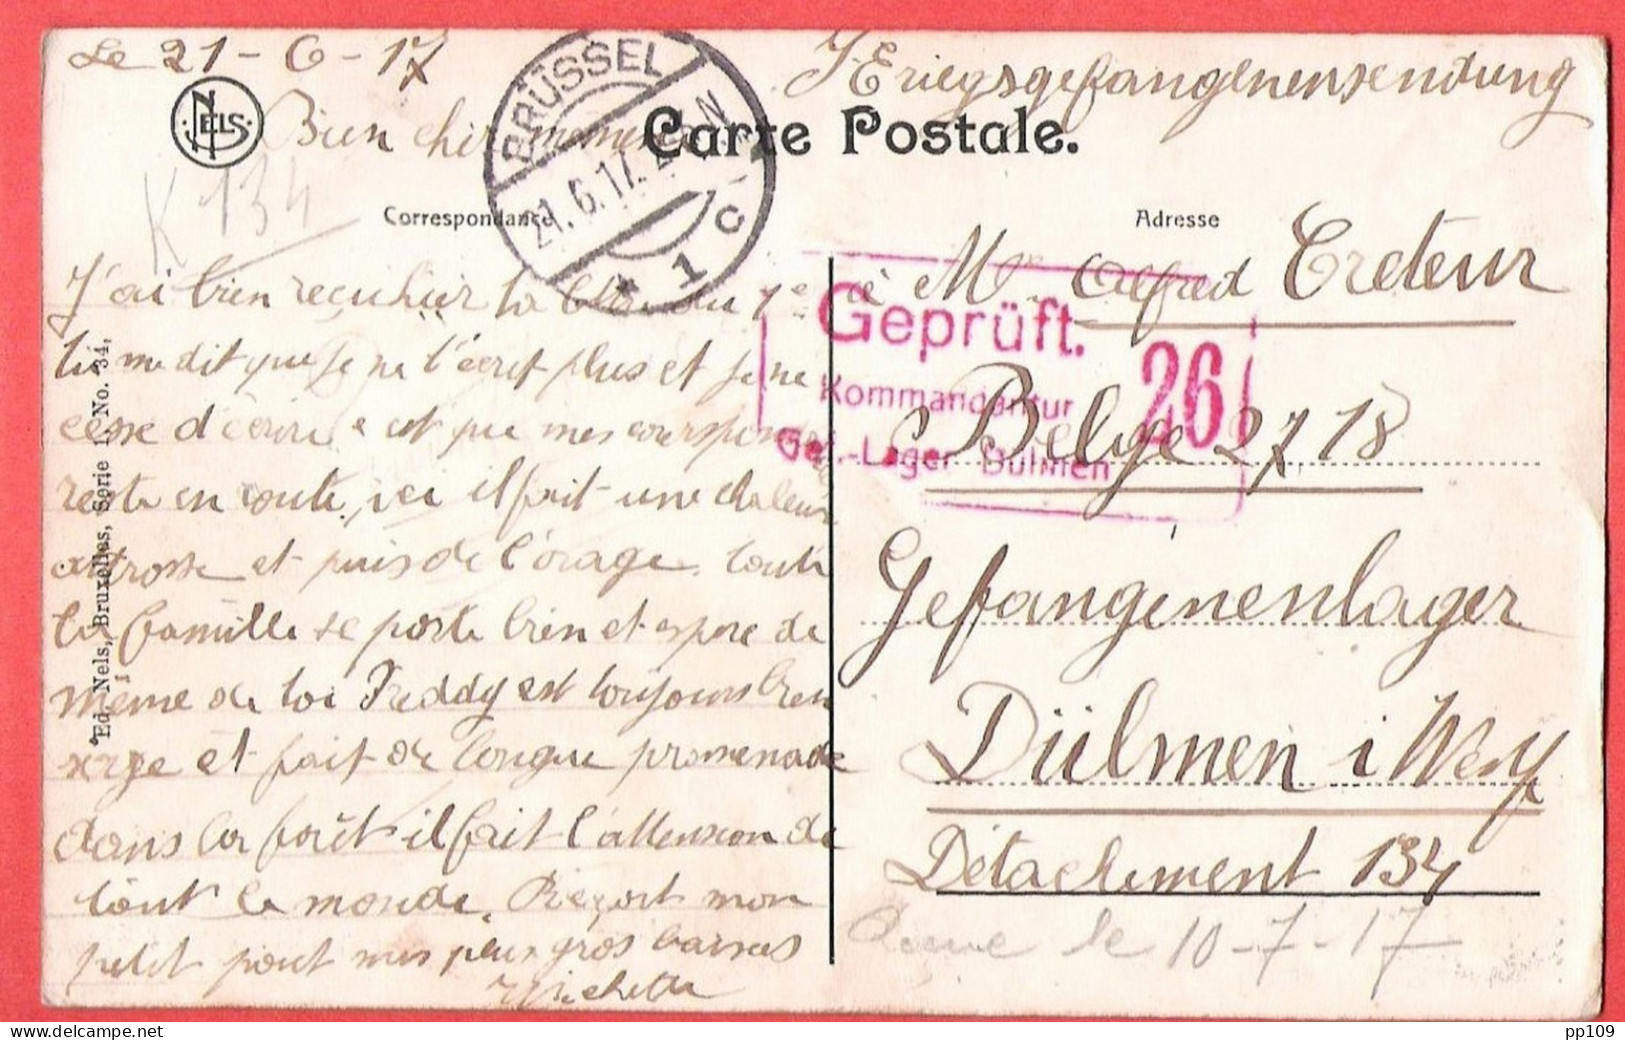 Le 21-6-17
Kriegsgefangenensendung
NELS
Bien cher
Carte Postale.
BRÜSSEL
21.6.17.
* 1 c
K 134
Correspondance
Adresse
J'ai bien reçu hier ta
tu me dit que je ne t'écret plus et je ne
cesse d'écrire c est que mes
reste en route, ici il fait une chaleur
et puis de l'orage. toute
la famille se porte bien et espere de
même de toi Freddy est toujours bien
et fait de longue promenade
dans la forêt il fait l'attension de
tout le monde. Reçoit mon
petit pout mes plus gros baisers
Ed. Nels, Bruxelles, Serie 1 No. 34,
à Mr Alfred Creteur
Geprüft.
Kommandantur
Gef.-Lager Dülmen
26
Belge 27 18
Gefangenenlager
Dülmen i Westf
Détachement 134
le 10-7-17
pp109